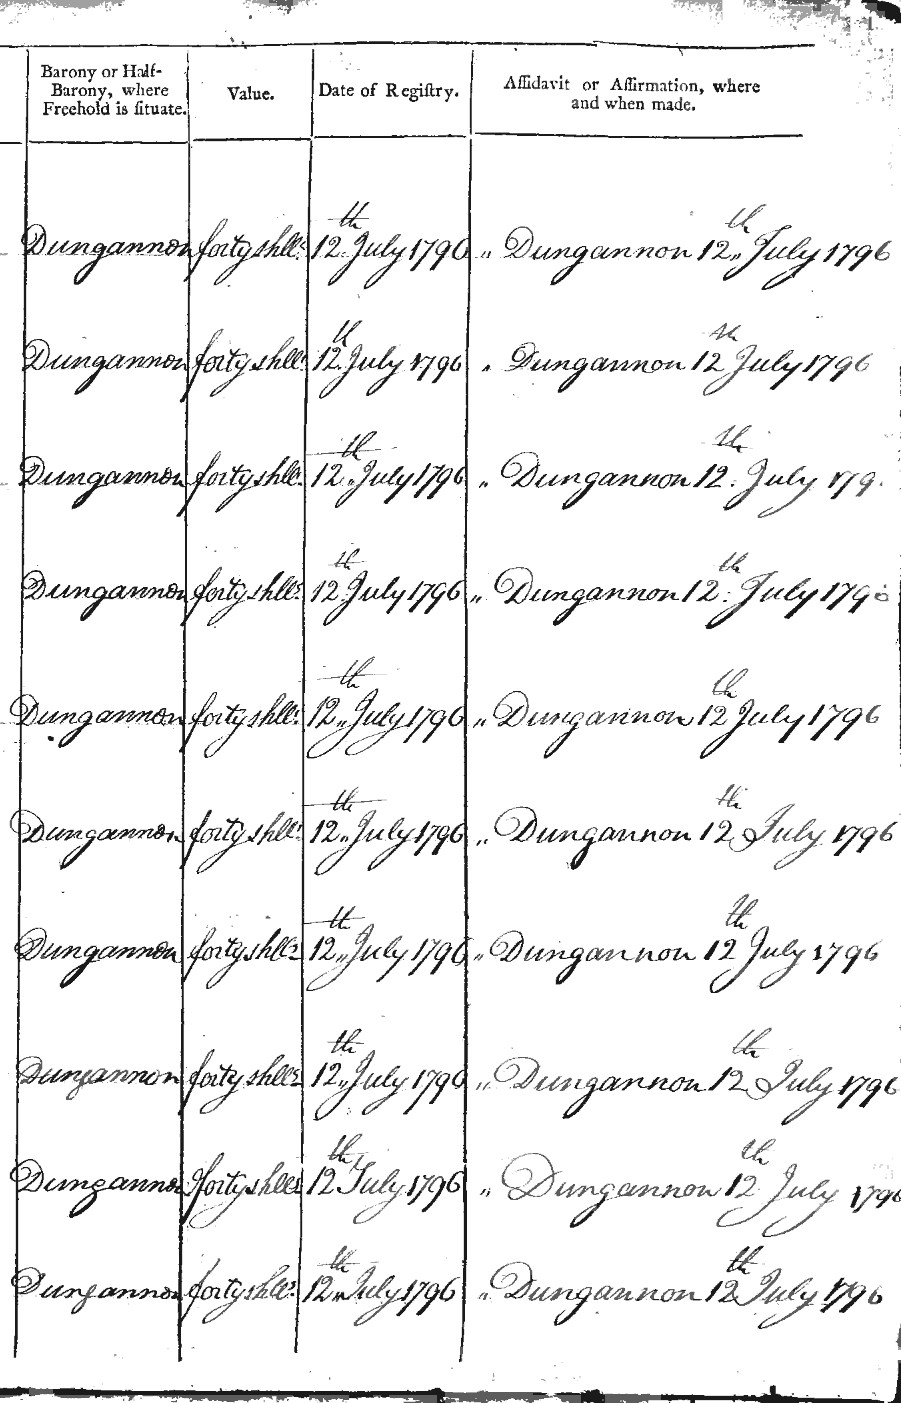 Barony or Half-Barony, where Freehold is situate. Value. Date of Registry. Affidavit or Affirmation, where and when made.
Dungannon forty shlls 12th July 1796 „ Dungannon 12th July 1796
Dungannon forty shlls 12th July 1796 „ Dungannon 12th July 1796
Dungannon forty shlls 12th July 1796 „ Dungannon 12th July 179
Dungannon forty shlls 12th July 1796 „ Dungannon 12th July 1796
Dungannon forty shlls 12th July 1796 „ Dungannon 12th July 1796
Dungannon forty shlls 12th July 1796 „ Dungannon 12th July 1796
Dungannon forty shlls 12th July 1796 „ Dungannon 12th July 1796
Dungannon forty shlls 12th July 1796 „ Dungannon 12th July 1796
Dungannon forty shlls 12th July 1796 „ Dungannon 12th July 1796
Dungannon forty shlls 12th July 1796 „ Dungannon 12th July 1796